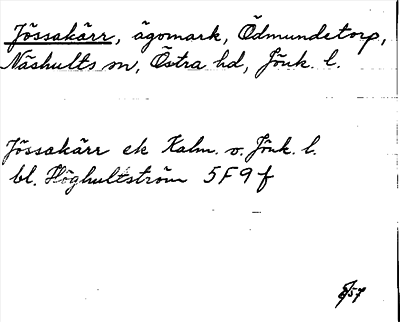 Jössakärr, ägomark, Ödmundetorp,
Näshults sn, Östra hd, Jönk. l.
Jössakärr ek Kalm. o. Jönk. l.
bl. Höghultström 5F9f